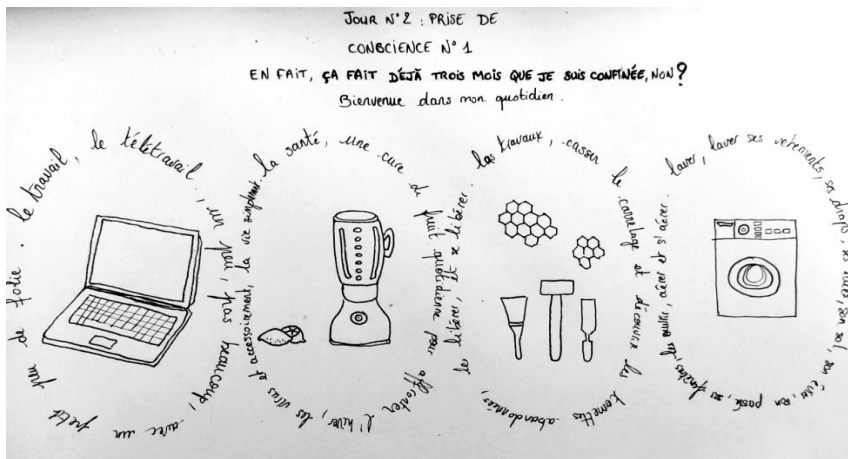 JOUR N°2 : PRISE DE
CONSCIENCE N°1
EN FAIT, ÇA FAIT DÉJÀ TROIS MOIS QUE JE SUIS CONFINÉE, NON?
Bienvenue dans mon quotidien.
le travail, le télétravail, un peu, pas beaucoup, avec un petit peu de folie.
la santé, une cure de fruit quotidienne pour affronter l'hiver, les virus et accessoirement, la vie simplement.
les travaux, casser le carrelage et découvrir les tomettes abandonnées, les libérer, et se libérer.
laver, laver ses vêtements, ses draps, ses, son sol, son évier, son passé, ses fenêtres, les ouvrir, aérer et s'aérer.